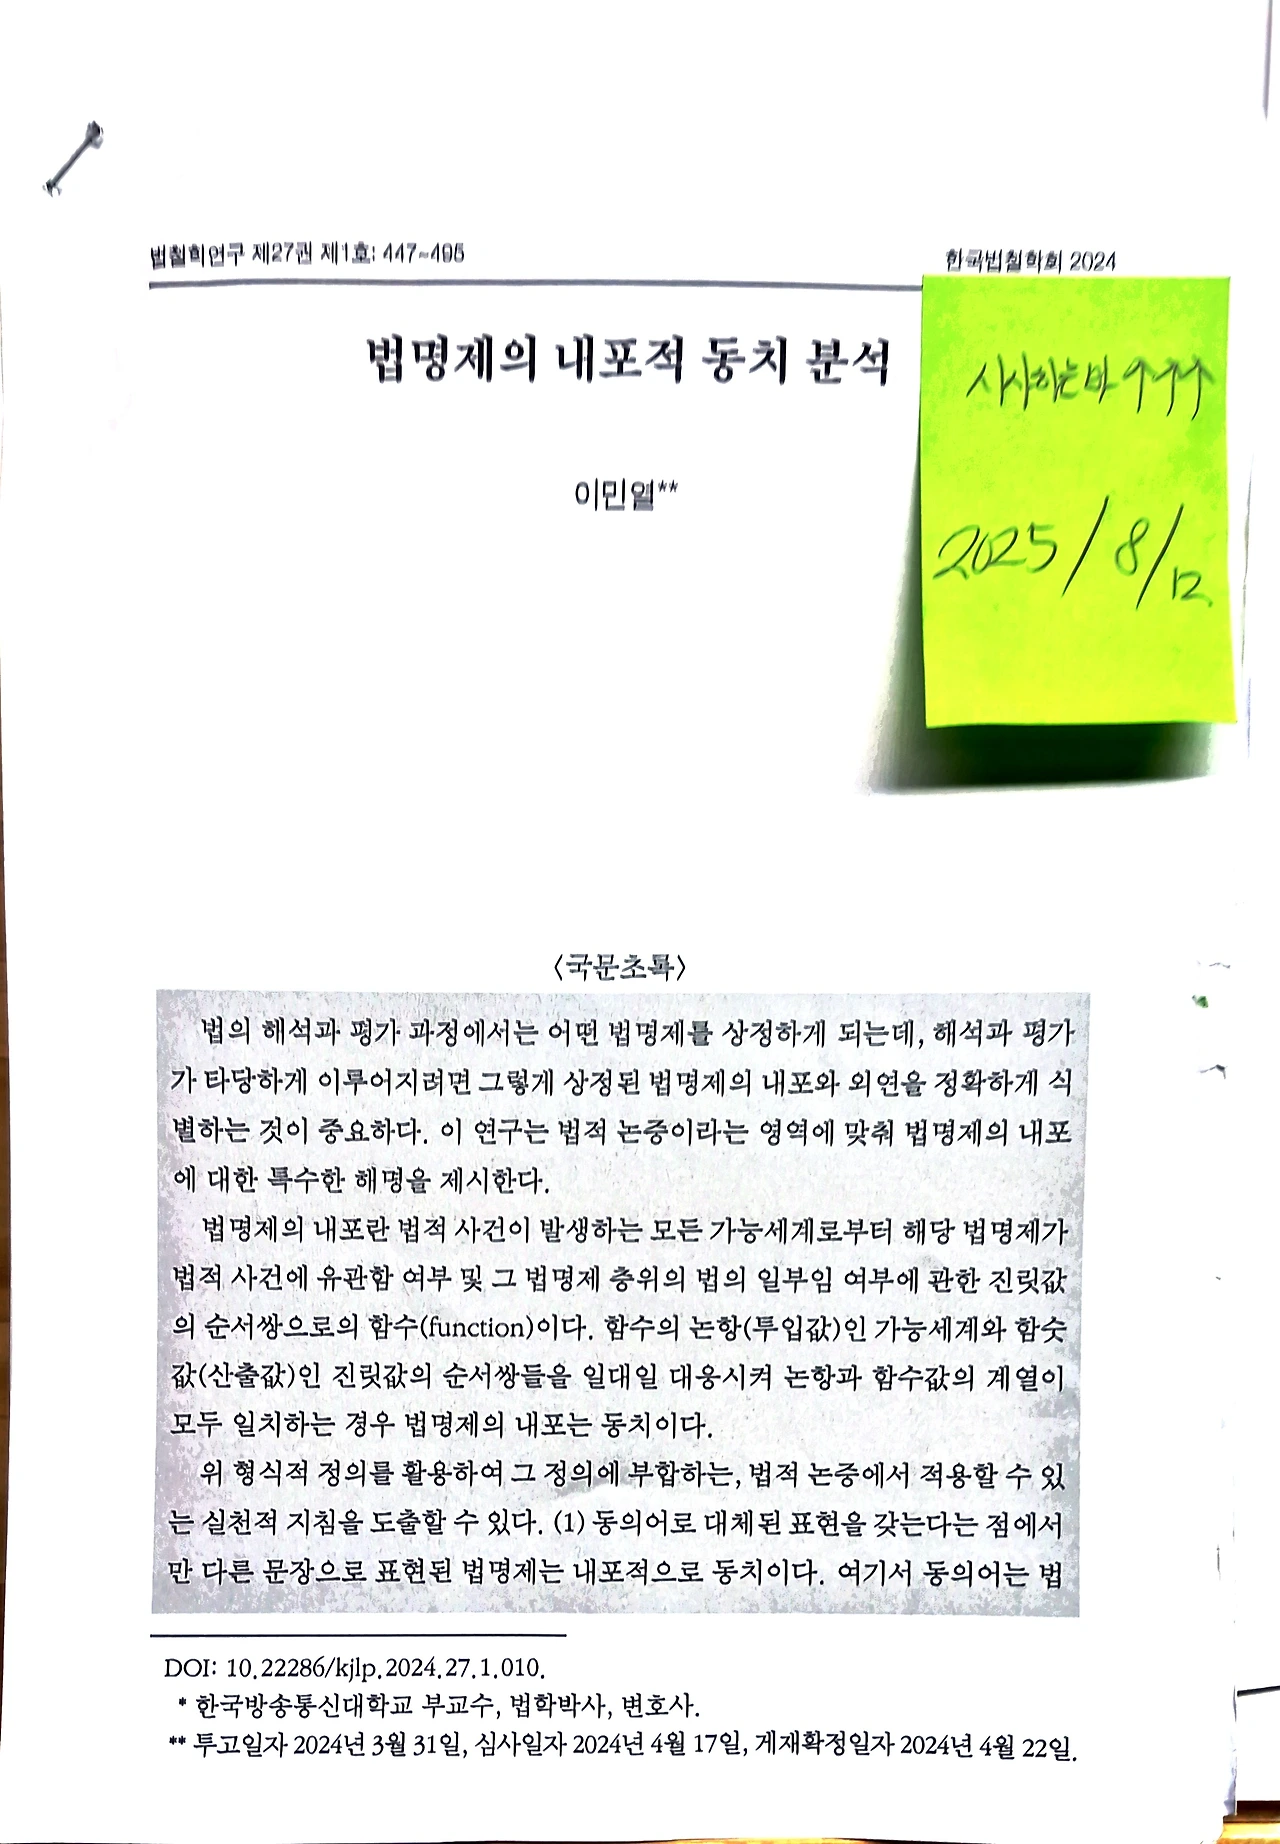 법철학연구 제27권 제1호: 447~495
한국법철학회 2024
법명제의 내포적 동치 분석
시사하는바 ↑↑↑
2025/8/12
이민열**
〈국문초록〉
법의 해석과 평가 과정에서는 어떤 법명제를 상정하게 되는데, 해석과 평가
가 타당하게 이루어지려면 그렇게 상정된 법명제의 내포와 외연을 정확하게 식
별하는 것이 중요하다. 이 연구는 법적 논증이라는 영역에 맞춰 법명제의 내포
에 대한 특수한 해명을 제시한다.
법명제의 내포란 법적 사건이 발생하는 모든 가능세계로부터 해당 법명제가
법적 사건에 유관함 여부 및 그 법명제 층위의 법의 일부임 여부에 관한 진릿값
의 순서쌍으로의 함수(function)이다. 함수의 논항(투입값)인 가능세계와 함숫
값(산출값)인 진릿값의 순서쌍들을 일대일 대응시켜 논항과 함수값의 계열이
모두 일치하는 경우 법명제의 내포는 동치이다.
위 형식적 정의를 활용하여 그 정의에 부합하는, 법적 논증에서 적용할 수 있
는 실천적 지침을 도출할 수 있다. (1) 동의어로 대체된 표현을 갖는다는 점에서
만 다른 문장으로 표현된 법명제는 내포적으로 동치이다. 여기서 동의어는 법
DOI: 10.22286/kjlp.2024.27.1.010.
* 한국방송통신대학교 부교수, 법학박사, 변호사.
** 투고일자 2024년 3월 31일, 심사일자 2024년 4월 17일, 게재확정일자 2024년 4월 22일.